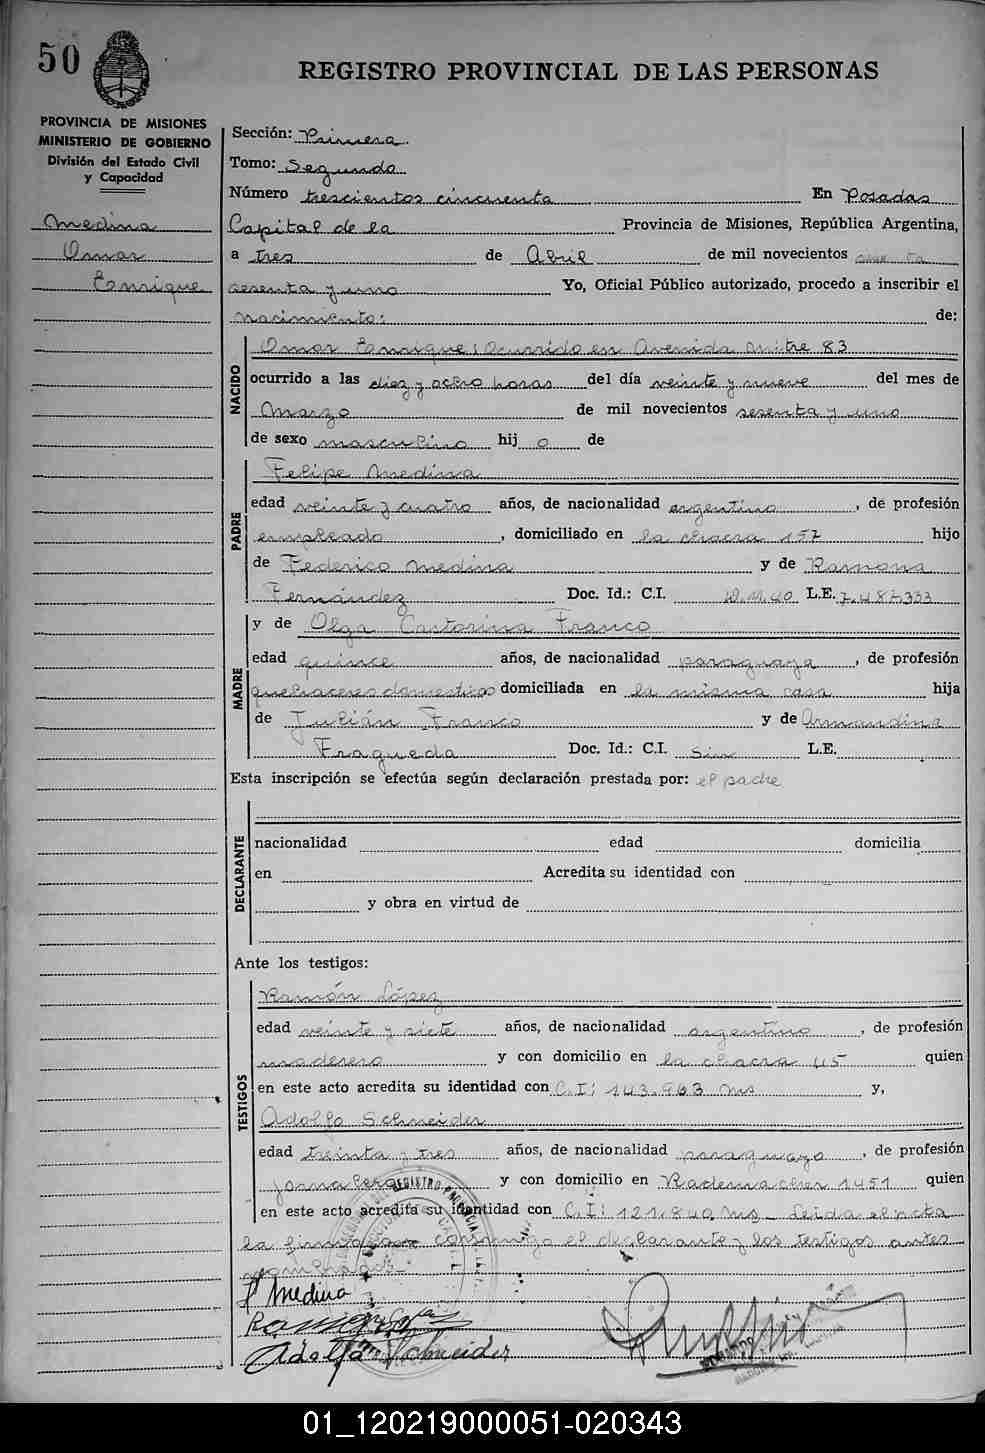 50
REGISTRO PROVINCIAL DE LAS PERSONAS
PROVINCIA DE MISIONES
MINISTERIO DE GOBIERNO
División del Estado Civil
y Capacidad
Medina
Omar
Enrique
Sección: Primera.
Tomo: Segundo
Número trescientos cincuenta En Posadas
Capital de la Provincia de Misiones, República Argentina,
a tres de Abril de mil novecientos
sesenta y uno Yo, Oficial Público autorizado, procedo a inscribir el
nacimiento: de:
NACIDO
Omar Enrique; Ocurrido en Avenida Mitre 83
ocurrido a las diez y ocho horas del día veinte y nueve del mes de
Marzo de mil novecientos sesenta y uno
de sexo masculino hij o de
PADRE
Felipe Medina
edad veinte y cuatro años, de nacionalidad argentino, de profesión
empleado, domiciliado en la chacra 157 hijo
de Federico Medina y de Ramona
Fernández Doc. Id.: C.I. L.E. 7.487.333
MADRE
y de Olga Castorina Franco
edad quince años, de nacionalidad paraguaya, de profesión
quehaceres domesticos domiciliada en la misma casa hija
de Julián Franco y de Armandina
Fragueda Doc. Id.: C.I. Sin L.E.
Esta inscripción se efectúa según declaración prestada por: el padre
DECLARANTE
nacionalidad edad domicilia
en Acredita su identidad con
y obra en virtud de
Ante los testigos:
TESTIGOS
Ramón López
edad veinte y siete años, de nacionalidad argentino, de profesión
maderero y con domicilio en la chacra 45 quien
en este acto acredita su identidad con C.I: 143.963 Ms y,
Adolfo Schneider
edad treinta y tres años, de nacionalidad paraguayo, de profesión
jornalero y con domicilio en Rademacher 1451 quien
en este acto acredita su identidad con C.I: 121.840 Ms_ Leida el acta
la firma por conmigo el declarante y los testigos antes
nombrados.
F Medina
Adolfo Schneider
01_120219000051-020343